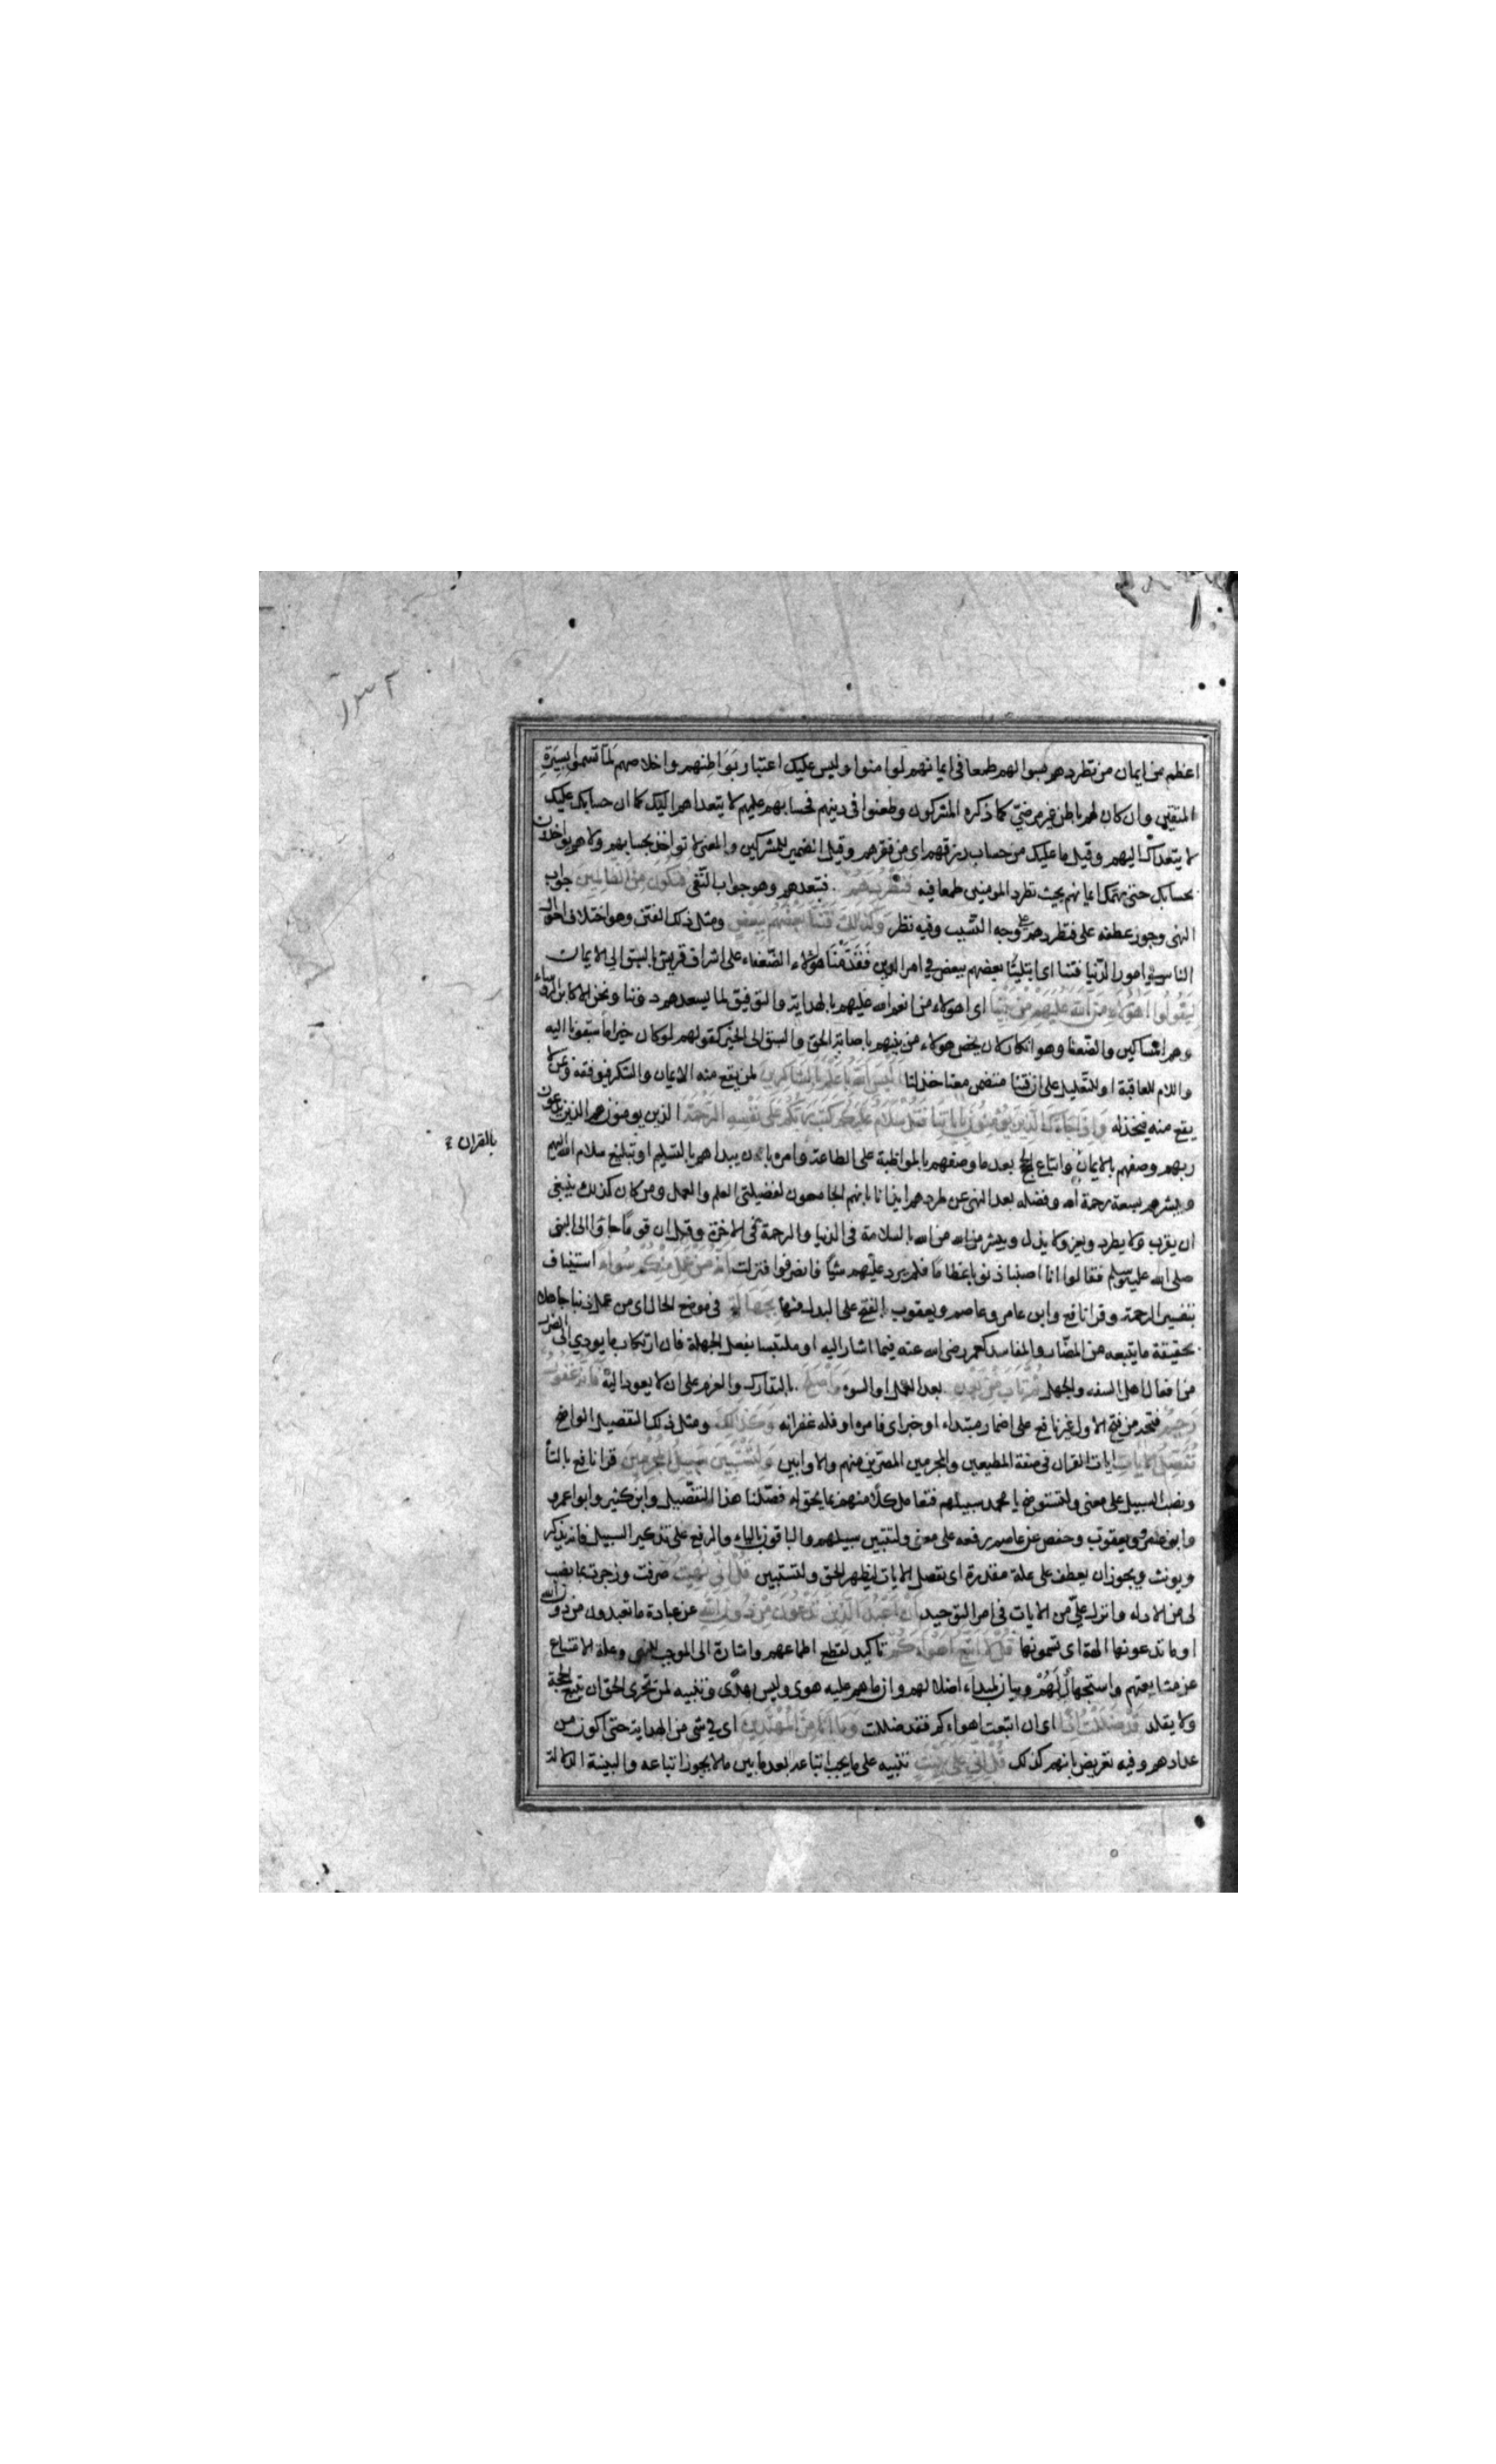 اعظم من ايمان من تطردهم بسوالهم طمعا فى ايمانهم لو امنوا وليس عليك اعتبار بواطنهم واخلاصهم لما تسموا بسيرة
المتقين وان كان لهم باطن غير مرضىّ كما ذكره المشركون وطعنوا فى دينهم فحسابهم عليهم لا يتعداهم اليك كما ان حسابك عليك
لا يتعداك اليهم وقيل ما عليك من حساب رزقهم اى من فقرهم وقيل الضمير للمشركين والمعنى لا تواخذ بحسابهم ولا هم يواخذون
بحسابك حتى يهمك ايمانهم بحيث تطرد المومنين طمعا فيه فتطردهم فتبعدهم وهو جواب النّفى فتكون من الظالمين جواب
النهى وجوز عطفه على فتطردهم على وجه التسبب وفيه نظر وكذلك فتنا بعضهم ببعض ومثل ذلك الفتن وهو اختلاف احوال
الناس فى امور الدّنيا فتنا اى ابتلينا بعضهم ببعض فى امر الدين فقدّمنا هولاء الضّعفاء على اشراف قريش بالسبق الى الايمان
ليقولوا اهولاء منّ الله عليهم من بيننا اى اهولاء من انعم الله عليهم بالهداية والتوفيق لما يسعدهم دوننا ونحن الاكابر الرؤساء
وهم المساكين والضّعفا وهو انكار لان يخص هولاء من بينهم باصابة الحق والسبق الى الخير كقولهم لو كان خيراً ما سبقونا اليه
واللام للعاقبة او للتعليل على ان فتنا متضمن معنا خذلنا اليس الله باعلم بالشاكرين لمن يقع منه الايمان والشكر فيوفقه وبمن لا
يقع منه فيخذله واذا جاءك الذين يومنون باياتنا فقل سلام عليكم كتب ربكم على نفسه الرحمة الذين يومنون هم الذين يدعون
ربهم وصفهم بالايمان واتباع الحجج بعد ما وصفهم بالمواظبة على الطاعة وامره بان يبداهم بالتسليم او تبليغ سلام الله اليهم
بالقران
ويبشرهم بسعة رحمة الله وفضله بعد النهى عن طردهم ايذانا بانهم الجامعون لفضيلتى العلم والعمل ومن كان كذلك ينبغى
ان يقرب ولا يطرد ويعز ولا يذل ويبشر من الله بالسلامة فى الدنيا والرحمة فى الاخرة وقيل ان قوما جاوا الى النبى
صلى الله عليه وسلم فقالوا انا اصبنا ذنوبا عظاما فلم يرد عليهم شيًا فانصرفوا فنزلت انه من عمل منكم سوءا استيناف
بتفسير الرحمة وقرا نافع وابن عامر وعاصم ويعقوب بالفتح على البدل منها بجهالة فى موضع الحال اى من عمل ذنبا جاهلا
بحقيقة ما يتبعه من المضار والمفاسد كعمر رضى الله عنه فيما اشار اليه او ملتبسا بفعل الجهلة فان ارتكاب ما يودي الى الضرر
من افعال اهل السفه والجهل ثم تاب من بعده بعد العمل او السوء واصلح بالتدارك والعزم على ان لا يعود اليه فانه غفور
رحيم فتحه من فتح الاول غير نافع على اضمار مبتداء او خبر اى فامره او فله غفرانه وكذلك ومثل ذلك التفصيل الواضح
نفصل الايات ايات القران فى صفة المطيعين والمجرمين المصرّين منهم والاوابين ولتستبين سبيل المجرمين قرا نافع بالتا
ونصب السبيل على معنى ولتستوضح يا محمد سبيلهم فتعامل كلا منهم بما يحق له فصّلنا هذا التفصيل وابن كثير وابو عمرو
وابن عامر ويعقوب وحفص عن عاصم برفعه على معنى ولتتبين سبيلهم والباقون بالياء والرفع على تذكير السبيل فانه يذكر
ويونث ويجوز ان يعطف على علة مقدرة اى نفصل الايات ليظهر الحق ولتستبين قل انى نهيت صرفت وزجرت بما نصب
لى من الادلة وانزل علىّ من الايات فى امر التوحيد ان اعبد الذين تدعون من دون الله عن عبادة ما تعبدون من دون الله
او ما تدعونها الهة اى تسمونها قل لا اتبع اهواءكم تاكيد لقطع اطماعهم واشارة الى الموجب للنهى وعلة الامتناع
عن متابعتهم واستجهال لهم وبيان لمبداء اضلالهم وان ما هم عليه هوى وليس بهدًى وتنبيه لمن تحرى الحق ان يتبع الحجة
ولا يقلد قد ضللت اذا اى ان اتبعت اهواءكم فقد ضللت وما انا من المهتدين اى فى شى من الهداية حتى اكون من
عدادهم وفيه تعريض بانهم كذلك قل انى على بينة تنبيه على ما يجب اتباعه بعد ما بين ما لا يجوز اتباعه والبينة الدلالة